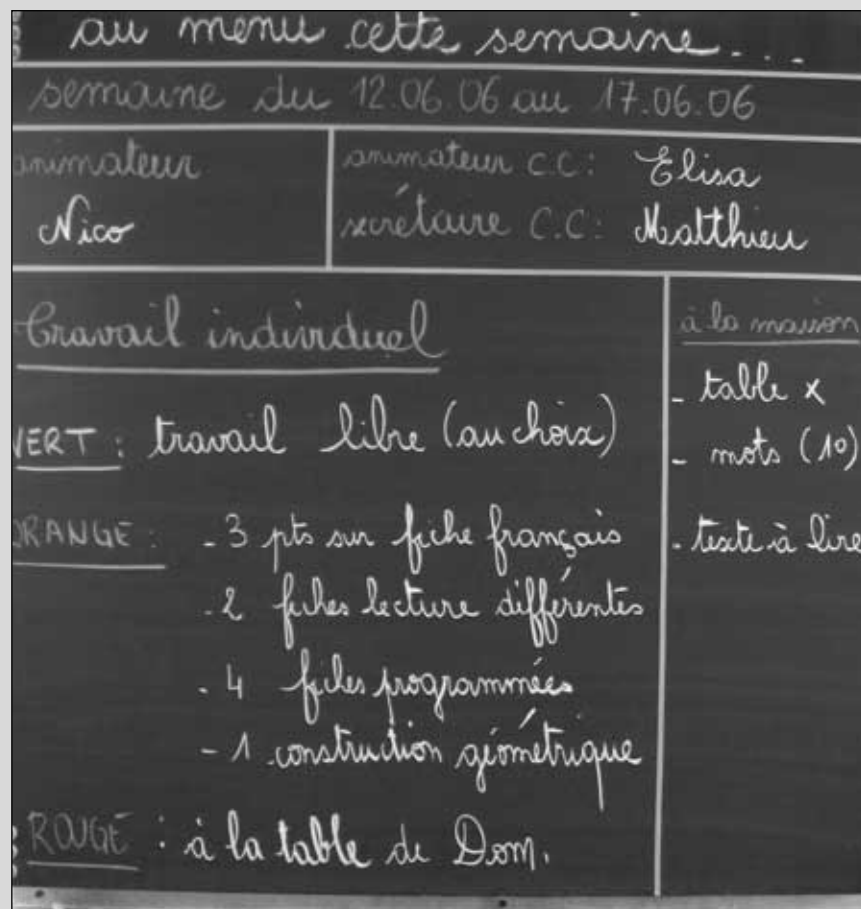 au menu cette semaine...
semaine du 12.06.06 au 17.06.06
animateur
Nico
animateur C.C: Elisa
secrétaire C.C: Matthieu
travail individuel
VERT : travail libre (au choix)
ORANGE : - 3 pts sur fiche français
- 2 fiches lecture différentes
- 4 fiches programmées
- 1 construction géométrique
ROUGE : à la table de Dom.
à la maison
- table x
- mots (10)
- texte à lire